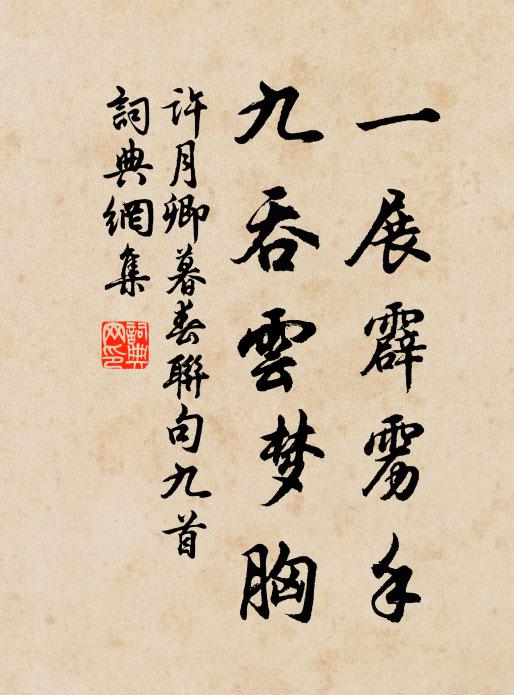 一展霹雳手
九吞雲梦胸
许月卿暮春聯句九首
詞典網集
詞典网印